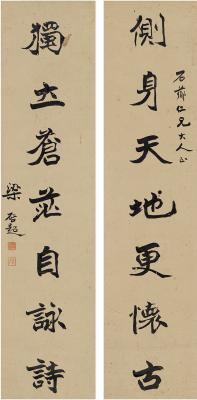 石薌仁兄大人正
側身天地更懷古
獨立蒼茫自詠詩
梁啓超